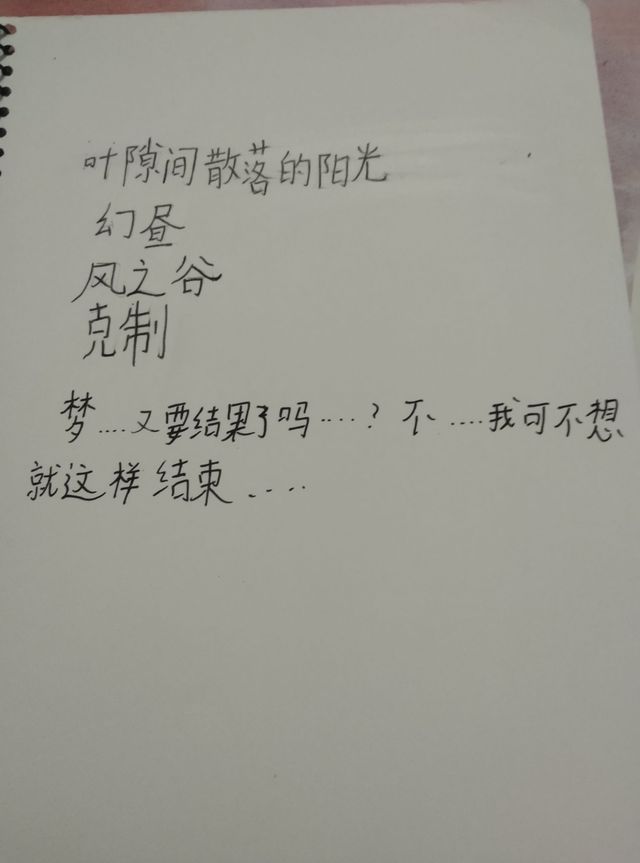 叶隙间散落的阳光
幻昼
风之谷
克制
梦....又要结果了吗....?不....我可不想
就这样结束....